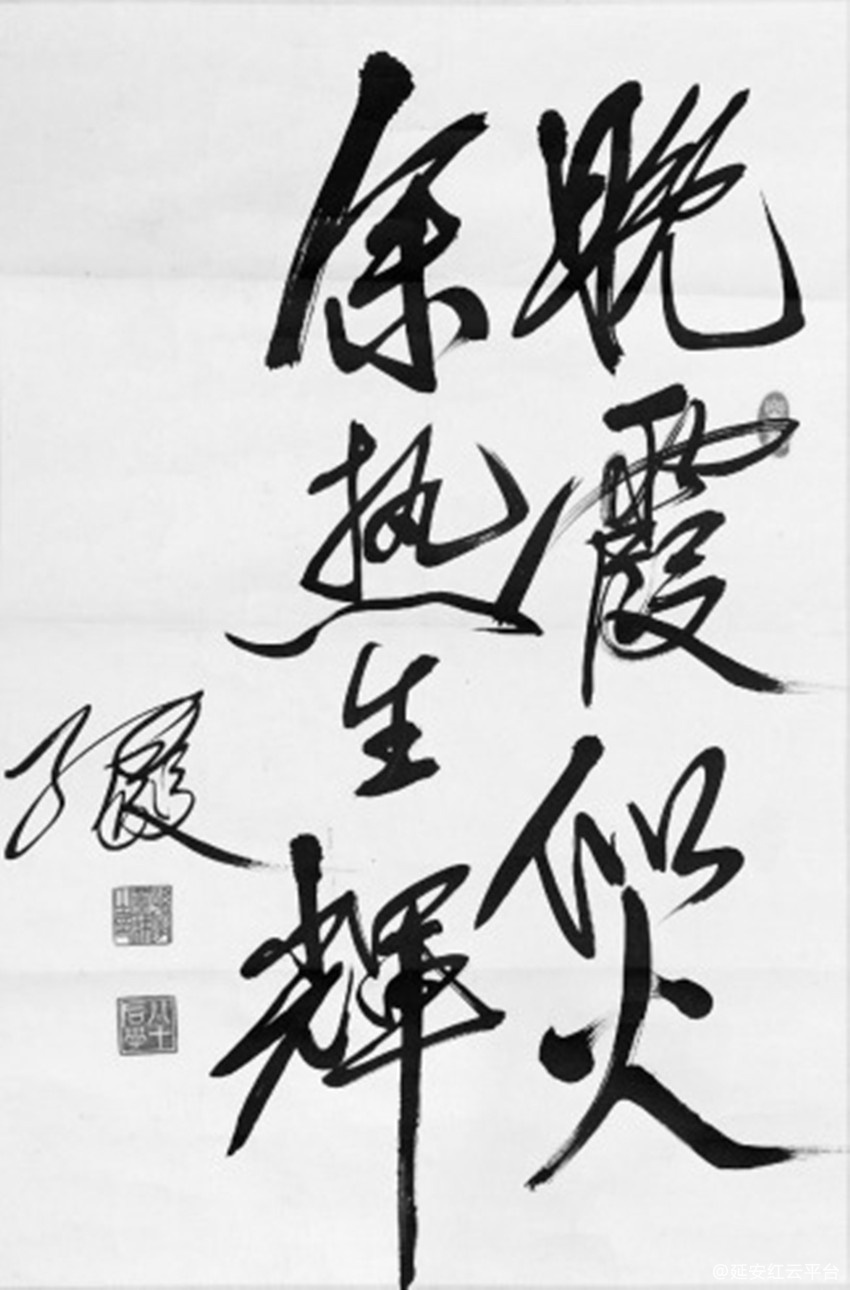 晚霞似火
余热生辉
八十后学
@延安红云平台